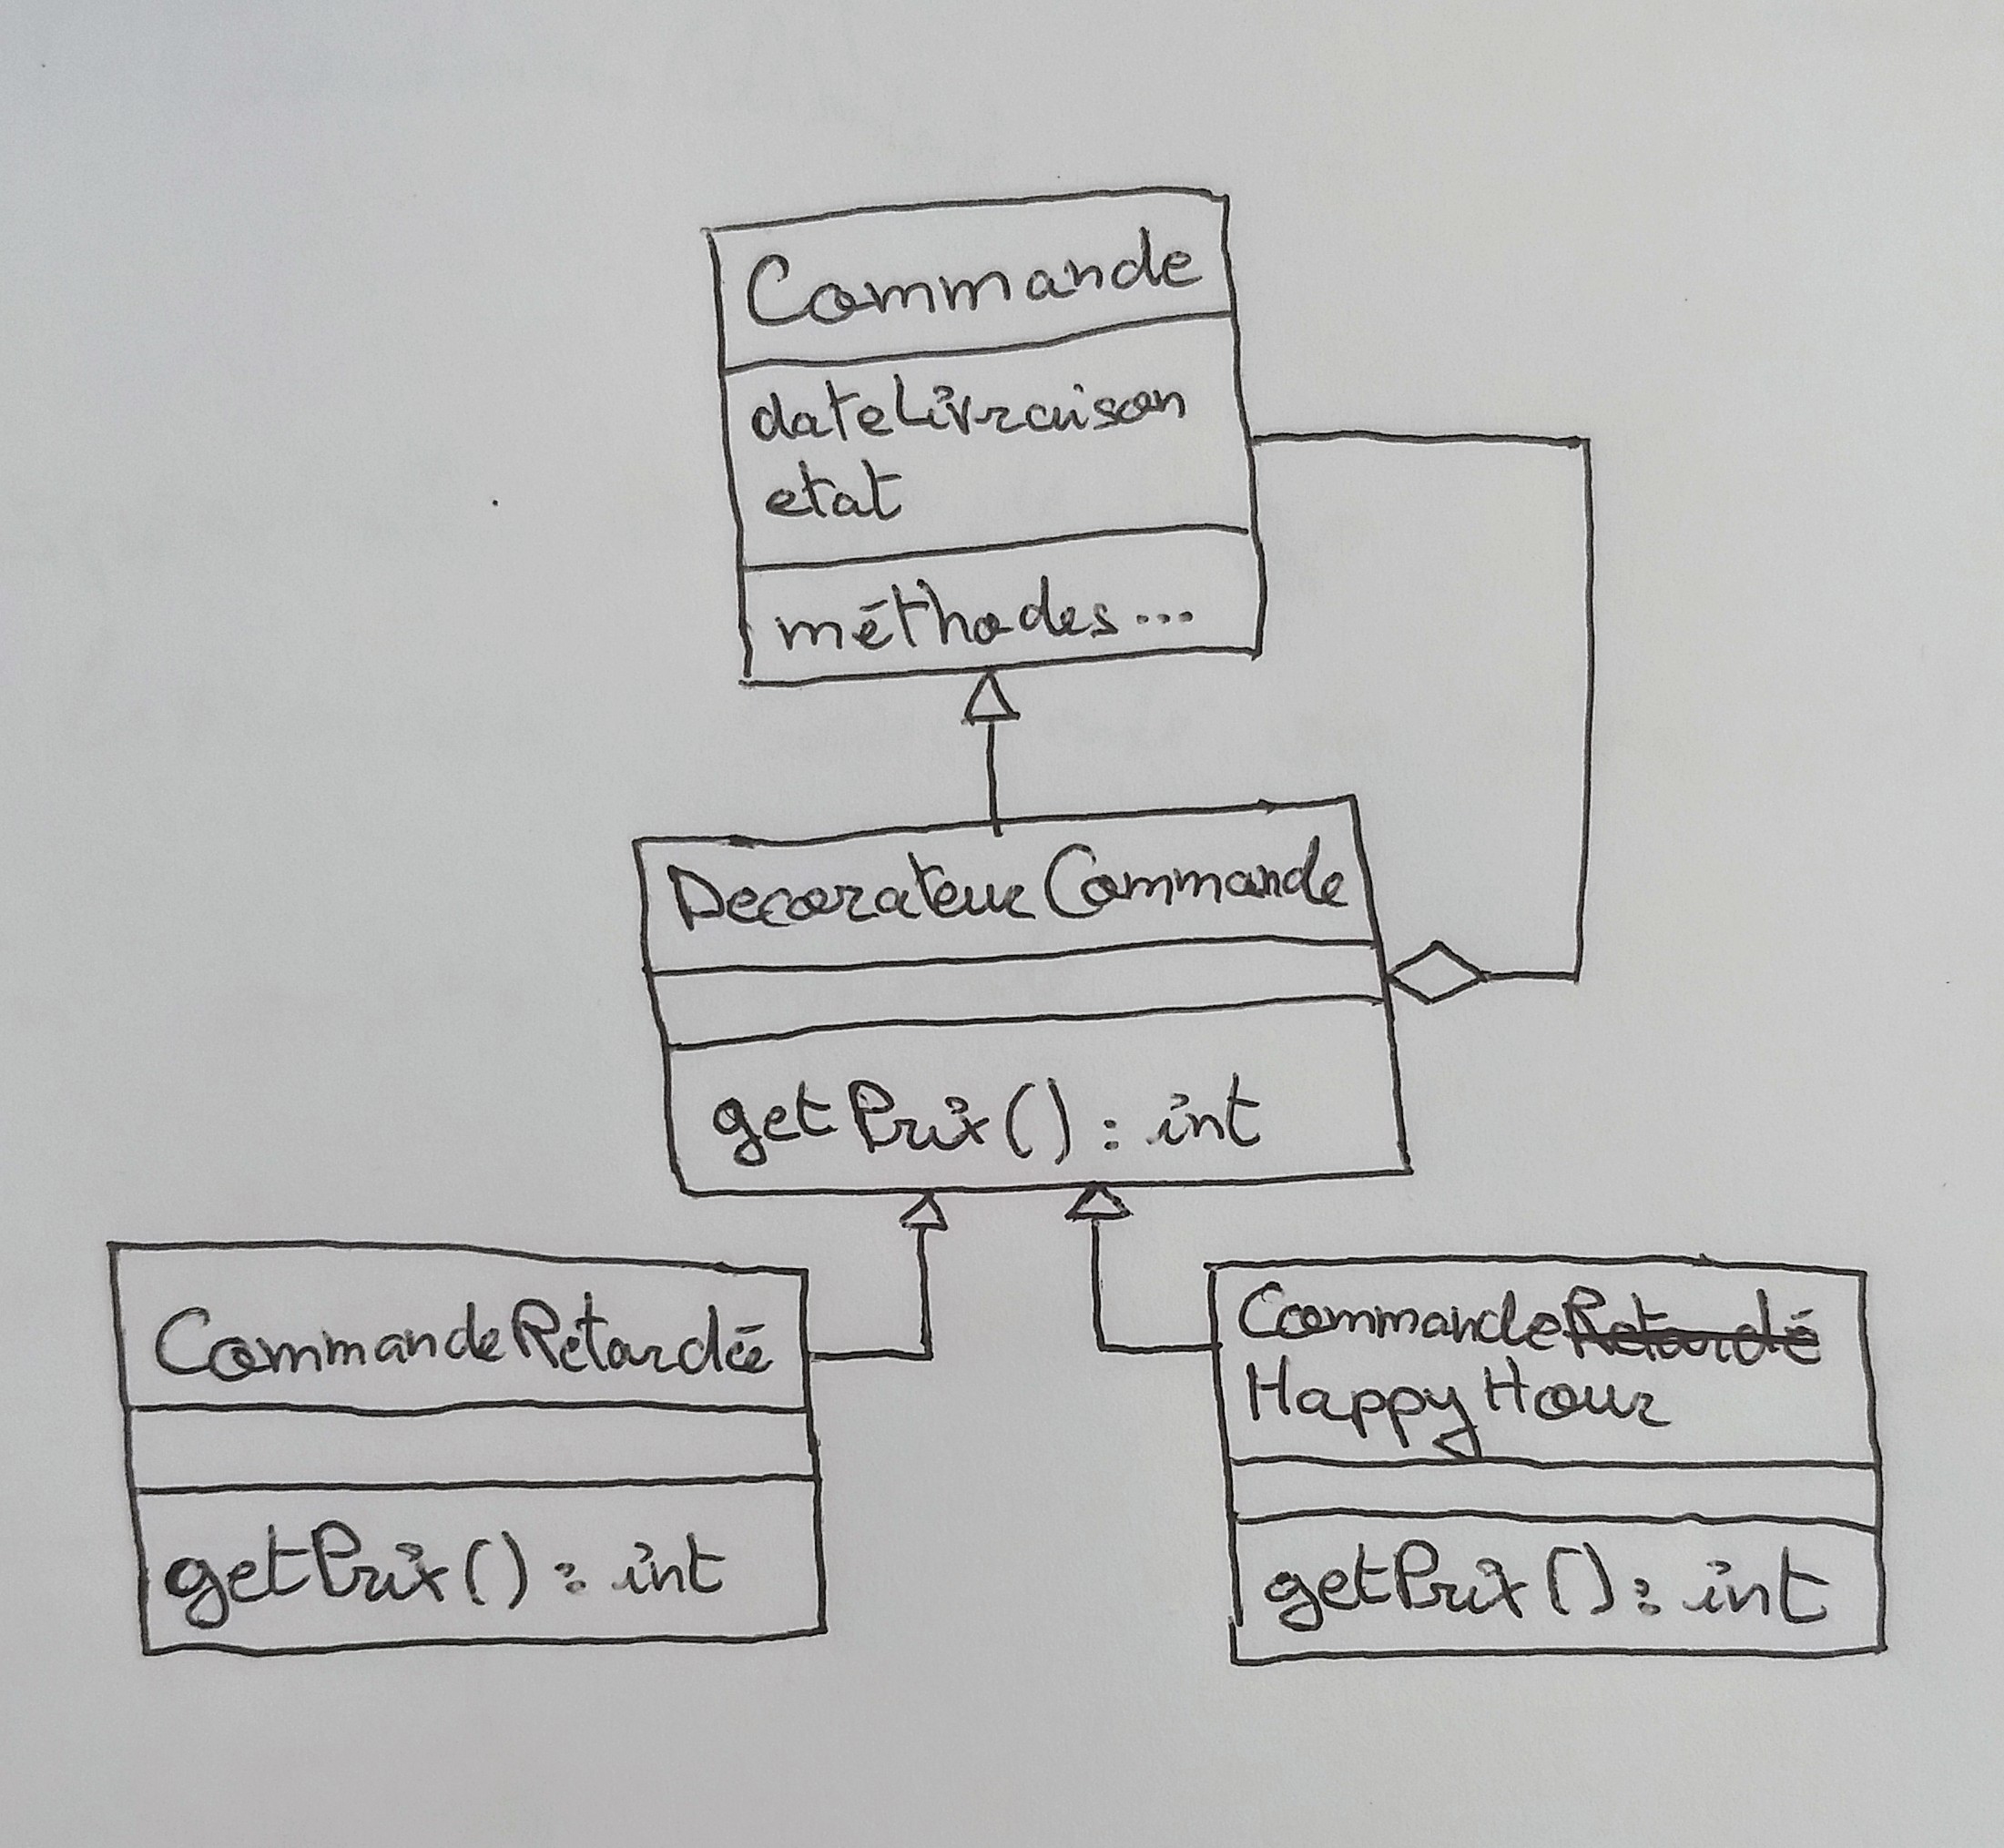 Commande
dateLivraison
etat
méthodes...
DecorateurCommande
getPrix() : int
CommandeRetardée
getPrix() : int
CommandeRetardé
HappyHour
getPrix() : int